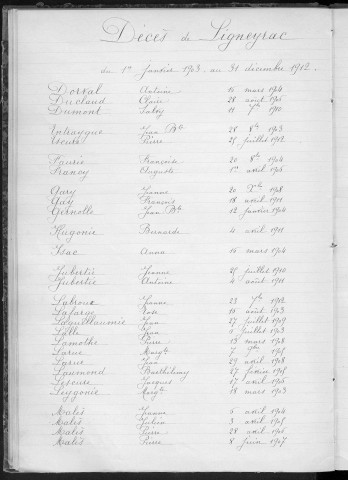 Décès de Ligneyrac
du 1er Janvier 1903 au 31 décembre 1912
Dorval Antoine 16 mars 1904
Duclaud Claire 28 août 1905
Dumont 11 7bre 1910
Entraygue Jean Bte 28 8bre 1903
Pierre 25 juillet 1912
Fauris Françoise 20 8bre 1904
Francy Auguste 1er avril 1905
Gary Jeanne 20 Xbre 1908
Gay François 18 avril 1911
Gernolle Jean Bte 12 janvier 1904
Hugonie Bernarde 4 avril 1911
Isac Anna 16 mars 1904
Jubertie Jeanne 25 juillet 1910
Jubertie Antoine 4 août 1911
Labrousse Jeanne 23 7bre 1912
Lafarge Rose 16 août 1903
Laguillaumie Jean 27 juillet 1909
Lalle Jean juillet 1903
Lamothe Pierre 13 mars 1908
Larue Margte 7
Larue Jean 29 avril 1908
Laumond Barthélemy 27 février 1905
Lescure Jacques 17 avril 1905
Leygonie Margte 18 mars 1903
Malès Jeanne 5 avril 1904
Malès Julien 3 avril 1905
Malès Pierre 28 avril
Malès Pierre 8 juin 1907